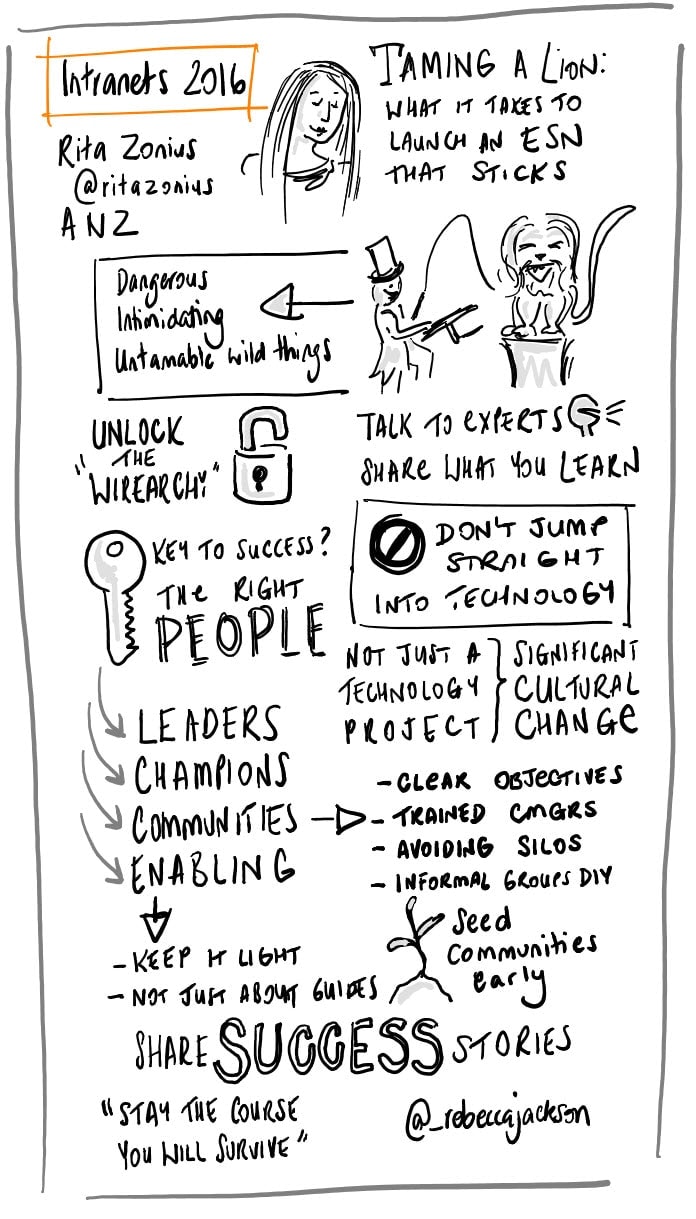 Intranets 2016
Rita Zonius
@ritazonius
ANZ
TAMING A LION:
WHAT IT TAKES TO
LAUNCH AN ESN
THAT STICKS
Dangerous
Intimidating
Untamable wild things
UNLOCK
THE
"WIREARCHY"
TALK TO EXPERTS
SHARE WHAT YOU LEARN
KEY TO SUCCESS?
THE RIGHT
PEOPLE
DON'T JUMP
STRAIGHT
INTO TECHNOLOGY
NOT JUST A
TECHNOLOGY
PROJECT
SIGNIFICANT
CULTURAL
CHANGE
LEADERS
CHAMPIONS
COMMUNITIES
ENABLING
- CLEAR OBJECTIVES
- TRAINED CMGRS
- AVOIDING SILOS
- INFORMAL GROUPS DIY
- KEEP IT LIGHT
- NOT JUST ABOUT GUIDES
Seed
Communities
early
SHARE SUCCESS STORIES
"STAY THE COURSE
YOU WILL SURVIVE"
@_rebeccajackson